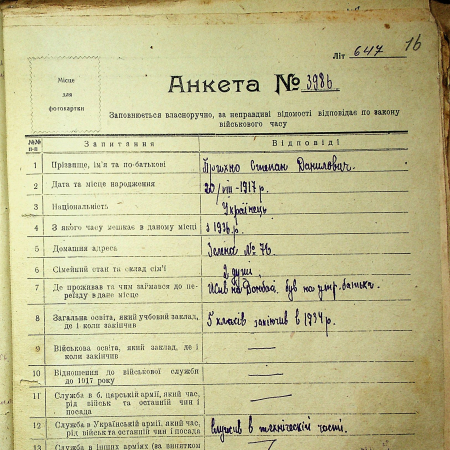 Літ 647 16
Місце
для
фотокартки
Анкета № 3986.
Заповнюється власноручно, за неправдиві відомості відповідає по закону
військового часу
№№ п-п Запитання Відповіді
1 Прізвище, ім'я та по-батькові Степан Данилович.
2 Дата та місце народження 20/VIII-1917 р.
3 Національність Українець
4 З якого часу мешкає в даному місці з 1936 р.
5 Домашня адреса Зелена № 76
6 Сімейний стан та склад сім'ї 2 душі
7 Де проживав та чим займався до переїзду в дане місце Жив на Донбасі. був на утр. батьків.
8 Загальна освіта, який учбовий заклад, де і коли закінчив 5 класів закінчив в 1934 р.
9 Військова освіта, який заклад, де і коли закінчив —
10 Відношення до військової служби до 1917 року —
11 Служба в б. царській армії, який час, рід військ та останній чин і посада —
12 Служба в Українській армії, який час, рід військ та останній чин і посада служив в технческій часті.
13 Служба в інших арміях (за винятком